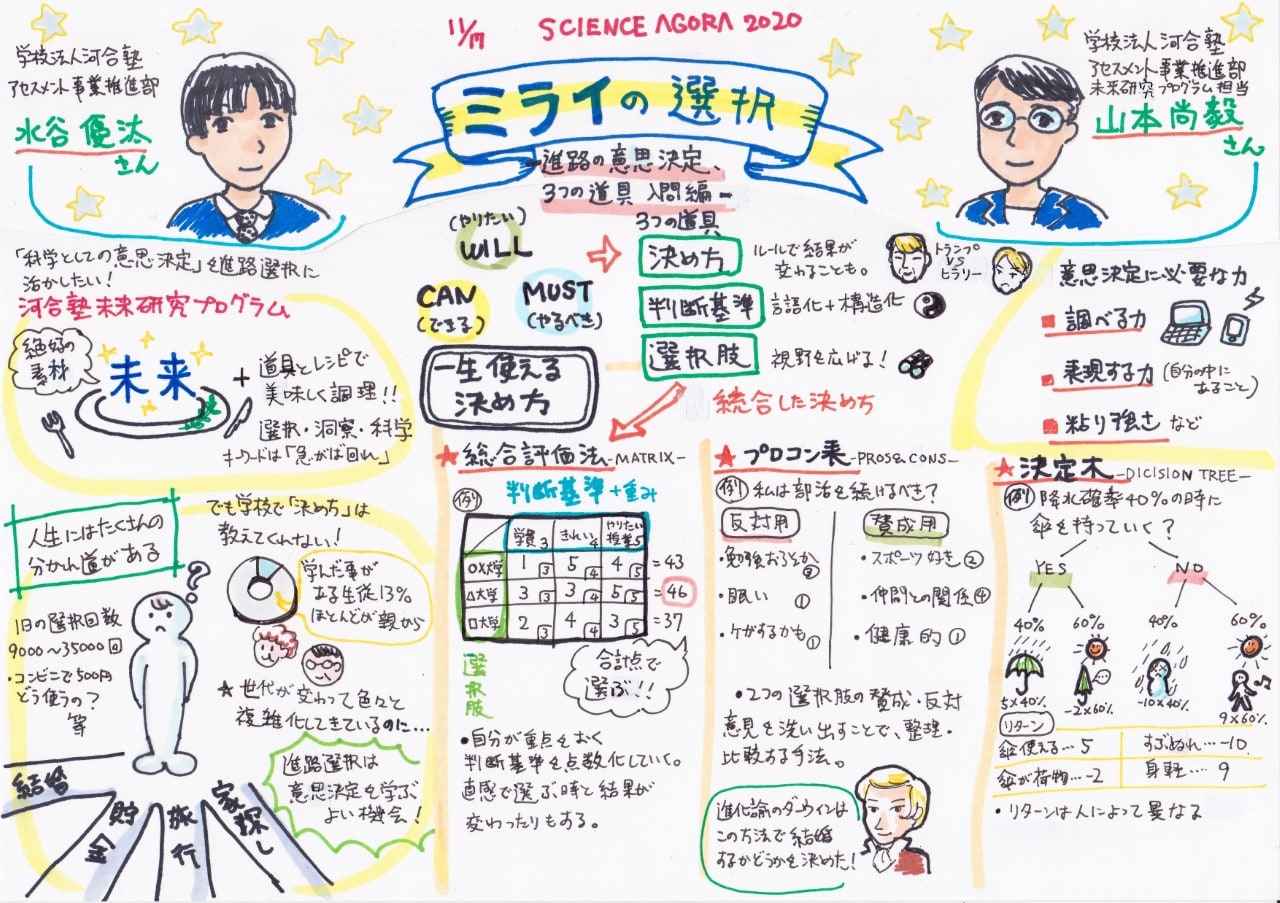 11/17 SCIENCE AGORA 2020
学校法人河合塾
アセスメント事業推進部
水谷優汰
さん
ミライの選択
-進路の意思決定、
3つの道具 入門編-
学校法人河合塾
アセスメント事業推進部
未来研究プログラム担当
山本尚毅
さん
「科学としての意思決定」を進路選択に
活かしたい!
河合塾未来研究プログラム
絶好の
素材
未来
+
道具とレシピで
美味しく調理!!
選択・洞察・科学
キーワードは「急がば回れ」
(やりたい)
WILL
CAN
(できる)
MUST
(やるべき)
一生使える
決め方
3つの道具
決め方
ルールで結果が
変わることも。
トランプ
VS
ヒラリー
判断基準
言語化+構造化
選択肢
視野を広げる!
統合した決め方
意思決定に必要な力
調べる力
表現する力(自分の中に
あること)
粘り強さ など
人生にはたくさんの
分かれ道がある
1日の選択回数
9000~35000回
・コンビニで500円
どう使うの?
等
?
結婚
貯金
旅行
家探し
でも学校で「決め方」は
教えてくれない!
学んだ事が
ある生徒13%
ほとんどが親から
★世代が変わって色々と
複雑化してきているのに…
進路選択は
意思決定を学ぶ
よい機会!
★総合評価法-MATRIX-
例 判断基準+重み
学費3 きれい4 やりたい授業5
OX大学 1 3 5 4 4 5 =43
△大学 3 3 3 4 5 5 =46
ロ大学 2 3 4 4 3 5 =37
選択肢
合計点で
選ぶ!!
・自分が重点をおく
判断基準を点数化していく。
直感で選ぶ時と結果が
変わったりもある。
★プロコン表-PROS&CONS-
例 私は部活を続けるべき?
反対用
・勉強おろそか
・眠い ①
・ケガするかも①
賛成用
・スポーツ好き②
・仲間との関係④
・健康的①
・2つの選択肢の賛成・反対
意見を洗い出すことで、整理・
比較する手法。
進化論のダーウィンは
この方法で結婚
するかどうかを決めた!
★決定木-DICISION TREE-
例 降水確率40%の時に
傘を持っていく?
YES NO
40% 60% 40% 60%
5×40% -2×60% -10×40% 9×60%
リターン
傘使える…5 ずぶぬれ…-10
傘が荷物…-2 身軽….9
・リターンは人によって異なる